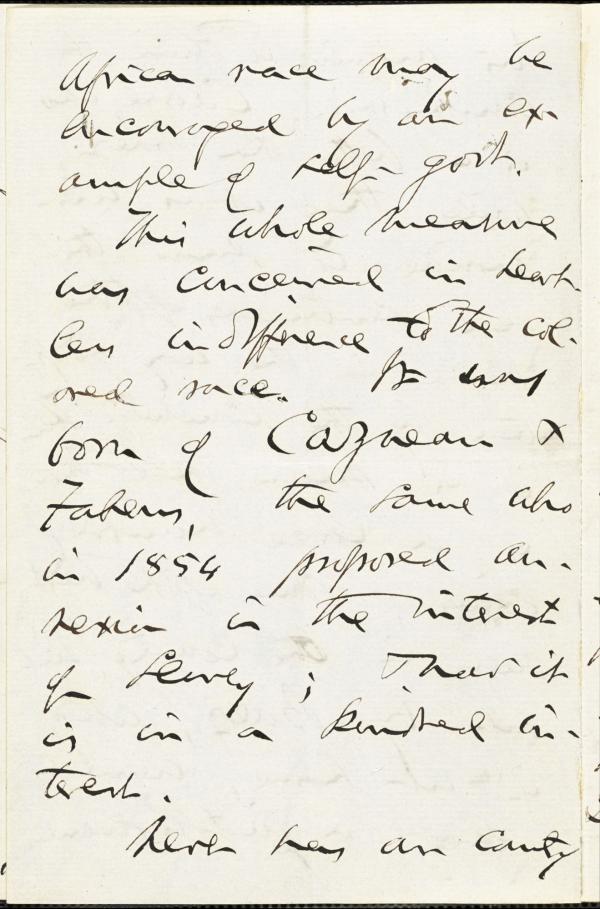 African race may be
encouraged by an ex-
ample of self-govt.
This whole measure
was conceived in heart-
less indifference to the col-
ored race. It was
born of Cazneau &
Fabens, the same who
in 1854 proposed an-
nexion in the interest
of slavery; & now it
is in a kindred in-
terest.
Never has our country